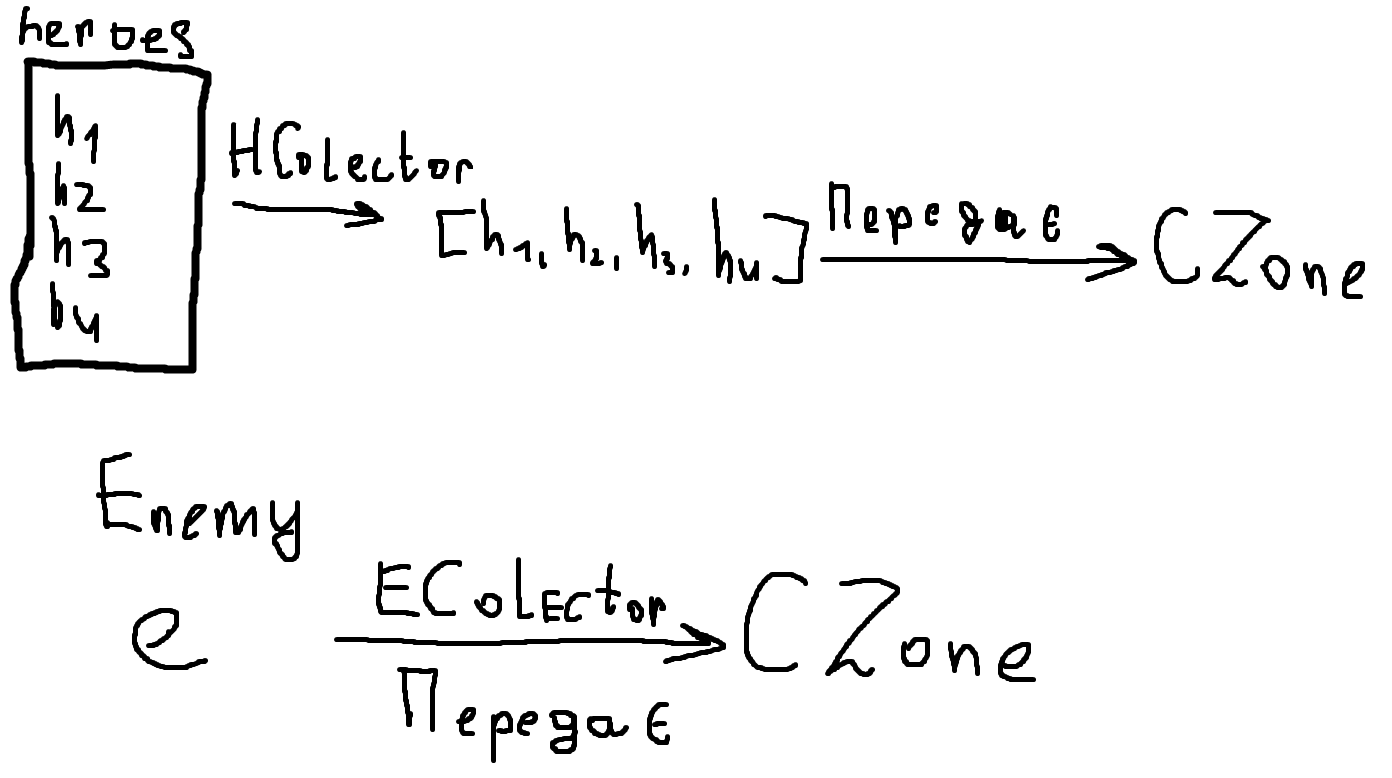 heroes
h1
h2
h3
h4
HColector
[h1, h2, h3, h4]
Передає
CZone
Enemy
e
EColector
Передає
CZone